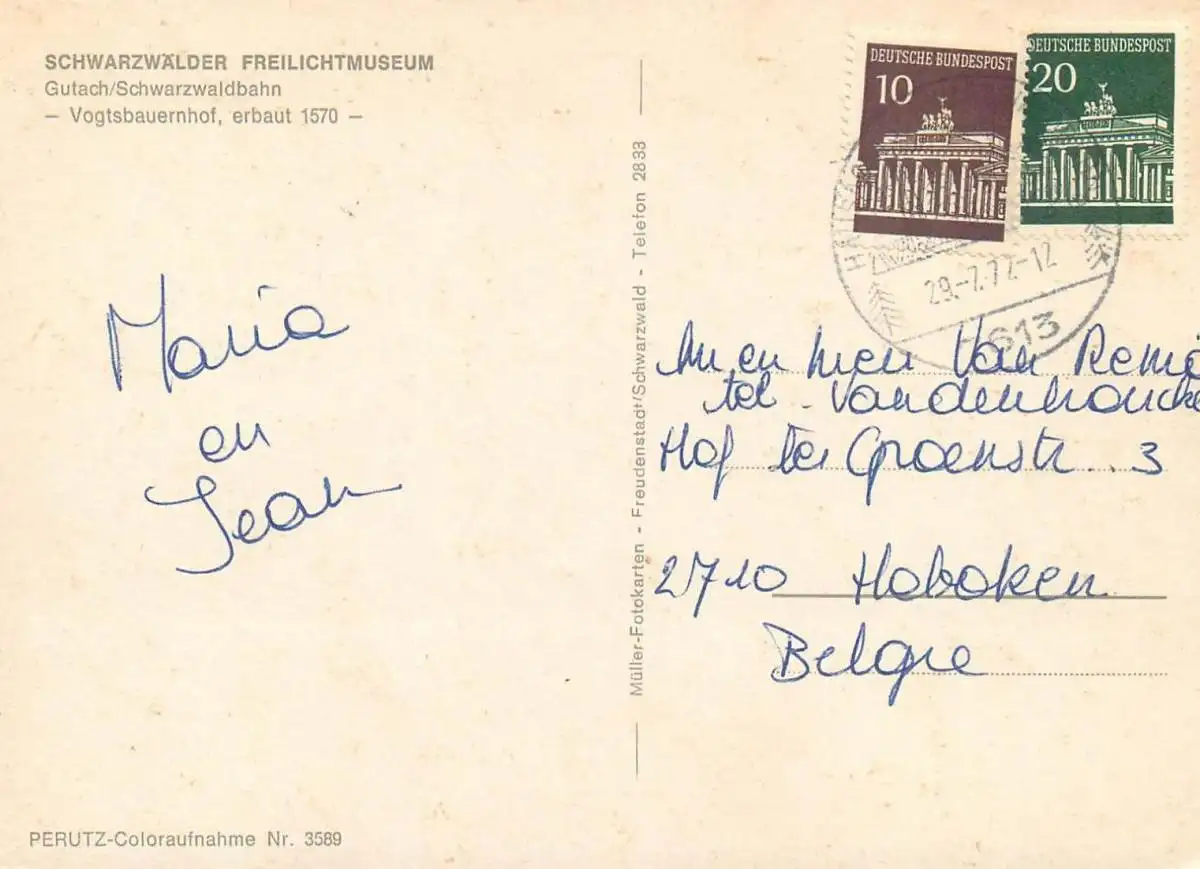 SCHWARZWÄLDER FREILICHTMUSEUM
Gutach/Schwarzwaldbahn
— Vogtsbauernhof, erbaut 1570 —
Maria
en
Jean
PERUTZ-Coloraufnahme Nr. 3589
Müller-Fotokarten - Freudenstadt/Schwarzwald - Telefon 2833
DEUTSCHE BUNDESPOST
10
DEUTSCHE BUNDESPOST
20
29.-7.72-12
613
en Van
tel. Vandenhoucke
Hof ter Groenstr. 3
2710 Hoboken
Belgie